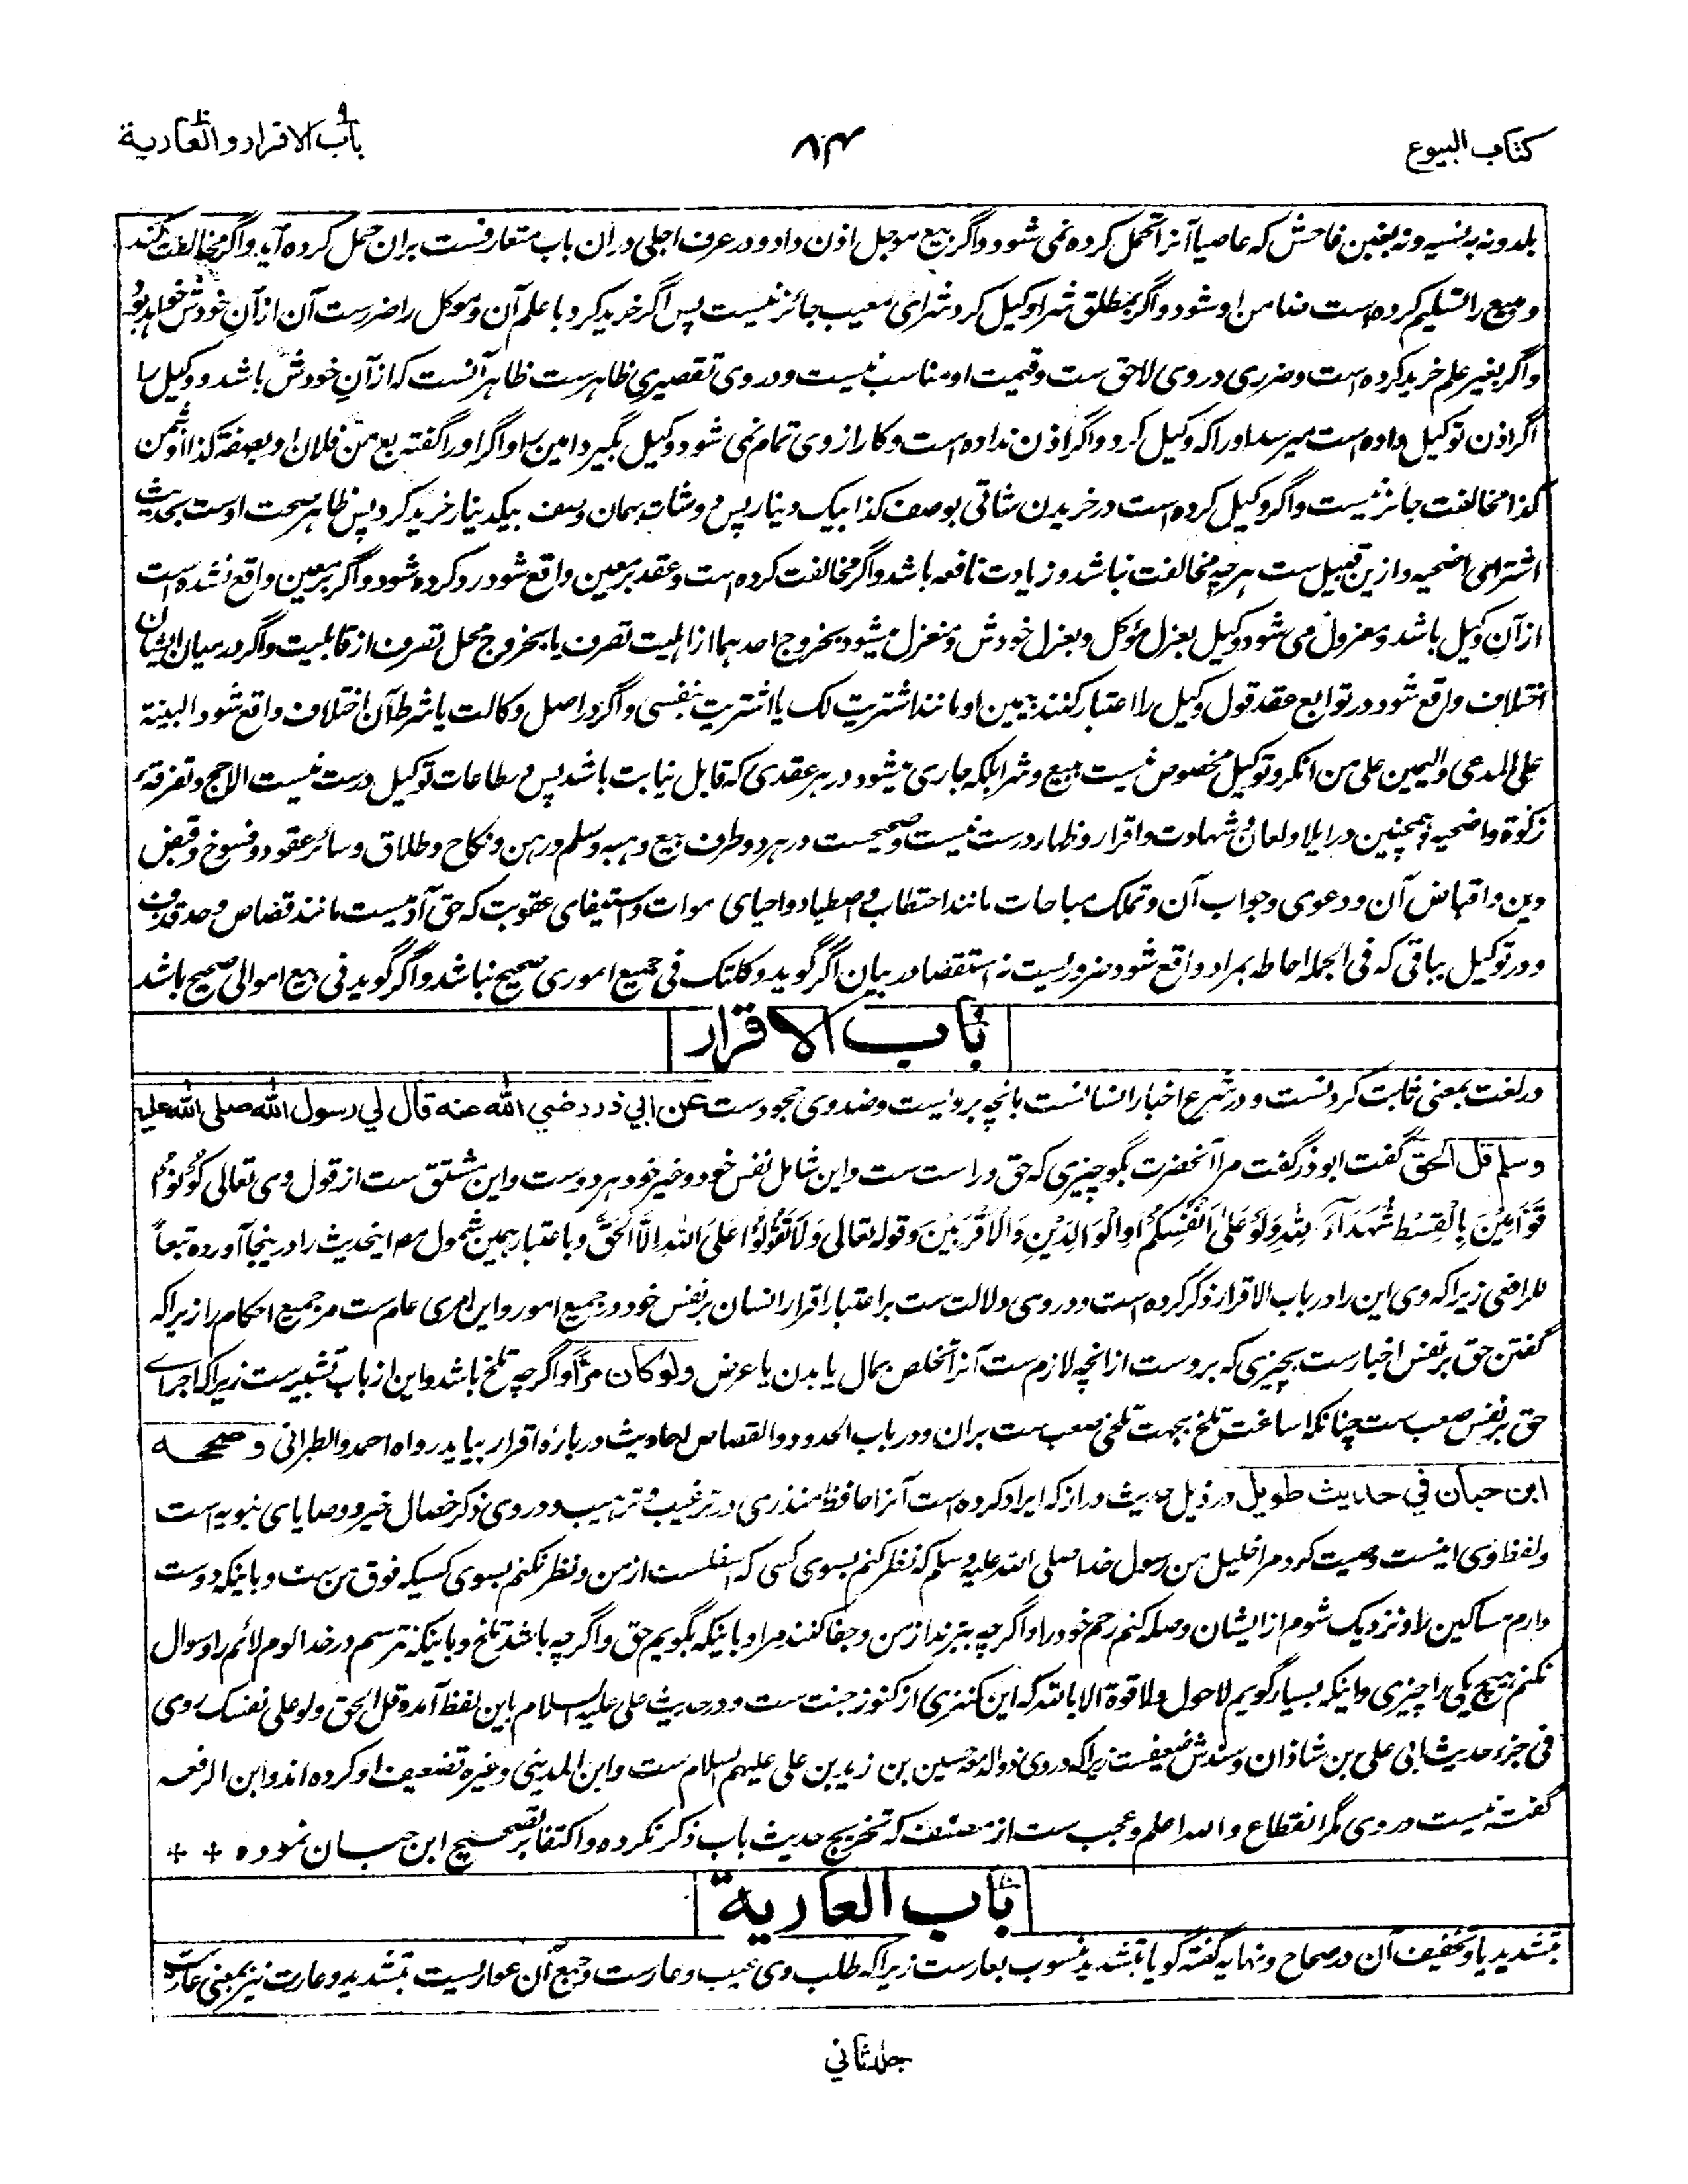 کتاب البیوع
۸۴
باب الاقرار و العاریة
بلد و نه به نسیه و نه بغبن فاحش که عاصیا آنرا تحمل کرده نمی شود و اگر بیع موجل اذن داد و در عرف اجلی دران باب متعارفست بران حمل کرده آید و اگر مخالفت کند
و مبیع را تسلیم کرده است ضامن او شود و اگر بمطلق شرا وکیل کرد شرای معیب جائز نیست پس اگر خرید کرد با علم آن و موکل را ضررست آن از آن خودش خواهد بود
و اگر بغیر علم خرید کرده است و ضرری در وی لاحق ست و قیمت او مناسب نیست و در وی تقصیری ظاهرست ظاهر آنست که از آن خودش باشد و وکیل را
اگر اذن توکیل داده است میرسد او را که وکیل کرد و اگر اذن نداده است و کار از وی تمام نمی شود وکیل بگیرد امین را و اگر او را گفته بع من فلان او بصفة کذا او بثمن
کذا مخالفت جائز نیست و اگر وکیل کرده است در خریدن شاتی بوصف کذا بیک دینار پس دو شات بهمان وصف بیکدینار خرید کرد پس ظاهر صحت اوست بحدیث
اشترای اضحیه و ازین قبیل ست هر چه مخالفت نباشد و زیادت نافعه باشد و اگر مخالفت کرده است و عقد بر معین واقع شود رد کرده شود و اگر بر معین واقع نشده است
از آن وکیل باشد و معزول می شود وکیل بعزل موکل و بعزل خودش و منعزل میشود بخروج احدهما از اهلیت تصرف یا بخروج محل تصرف از قابلیت و اگر در میان ایشان
اختلاف واقع شود در توابع عقد قول وکیل را اعتبار کنند بیمین او مانند اشتریت لک یا اشتریت بنفسی و اگر در اصل وکالت یا شرط آن اختلاف واقع شود البینة
علی المدعی و الیمین علی من انکر و توکیل مخصوص نیست ببیع و شرا بلکه جاری میشود در هر عقدی که قابل نیابت باشد پس در طاعات توکیل درست نیست الا حج و تفرقهٔ
زکوة و اضحیه و همچنین در ایلا و لعان و شهادت و اقرار و ظهار درست نیست و صحیحست در هر دو طرف بیع و هبه و سلم و رهن و نکاح و طلاق و سائر عقود و فسوخ و قبض
دین و اقباض آن و دعوی و جواب آن و تملک مباحات مانند احتطاب و اصطیاد و احیای موات و استیفای عقوبت که حق آدمیست مانند قصاص و حد قذف
و در توکیل بباقی که فی الجمله احاطه بمراد واقع شود ضروریست نه استقصا در بیان اگر گوید وکلتک فی جمیع اموری صحیح نباشد و اگر گوید فی بیع اموالی صحیح باشد
باب الاقرار
در لغت بمعنی ثابت کردنست و در شرع اخبار انسانست بانچه برویست و ضد وی جحودست عن ابي ذر رضي الله عنه قال لي رسول الله صلى الله عليه
وسلم قل الحق گفت ابوذر گفت مرا آنحضرت بگو چیزی که حق و راست ست و این شامل نفس خود و غیر خود هر دوست و این مشتق ست از قول وی تعالی كُوْنُوْا
قَوَّامِيْنَ بِالْقِسْطِ شُهَدَآءَ لِلّٰهِ وَلَوْ عَلٰى اَنْفُسِكُمْ اَوِ الْوَالِدَيْنِ وَالْاَقْرَبِيْنَ و قوله تعالی وَلَا تَقُوْلُوْا عَلَى اللّٰهِ اِلَّا الْحَقَّ و باعتبار همین شمول مص اینحدیث را درینجا آورده تبعاً
للرافعی زیرا که وی این را در باب الاقرار ذکر کرده است و در وی دلالت ست بر اعتبار اقرار انسان بر نفس خود در جمیع امور و این امری عام ست مر جمیع احکام را زیرا که
گفتن حق بر نفس اخبارست بچیزی که بروست از انچه لازم ست آنرا تخلص بمال یا بدن یا عرض ولو كان مرًّا و اگرچه تلخ باشد و این از باب تشبیه ست زیرا که اجرای
حق بر نفس صعب ست چنانکه اساغت تلخ بجهت تلخی صعب ست بران و در باب الحدود و القصاص احادیث در باره اقرار بیاید رواه احمد والطبرانی و صححه
ابن حبان في حديث طويل در ذیل حدیث دراز که ایراد کرده است آنرا حافظ منذری در ترغیب و ترهیب و در وی ذکر خصال خیر و وصایای نبویه است
و لفظ وی اینست وصیت کرد مرا خلیل من رسول خدا صلی الله علیه وسلم که نظر کنم بسوی کسی که اسفلست از من و نظر نکنم بسوی کسیکه فوق من ست و باینکه دوست
دارم مساکین را و نزدیک شوم از ایشان و صله کنم رحم خود را و اگرچه ببرند از من و جفا کنند مرا و باینکه بگویم حق و اگرچه باشد تلخ و باینکه نترسم در خدا لوم لائم را و سوال
نکنم هیچ یکی را چیزی و اینکه بسیار گویم لاحول ولا قوة الا بالله که این کنزی از کنوز جنت ست و در حدیث علی علیه السلام باین لفظ آمده قل الحق ولو علی نفسک روی
فی جزء حدیث ابی علی بن شاذان و سندش ضعیفست زیرا که در وی ذو الدمعه حسین بن زید بن علی علیهم السلام ست و ابن المدینی و غیره تضعیف او کرده اند و ابن الرفعه
گفته نیست در وی مگر انقطاع والله اعلم و عجب ست از مصنف که تخریج حدیث باب ذکر نکرده و اکتفا بر تصحیح ابن حبان نموده
باب العاریة
بتشدید یا و تخفیف آن در صحاح و نهایه گفته گویا بتشدید منسوب بعارست زیرا که طلب وی عیب و عارست و جمع آن عواریست بتشدید و عارت نیز بمعنی عاریت
جلد ثاني